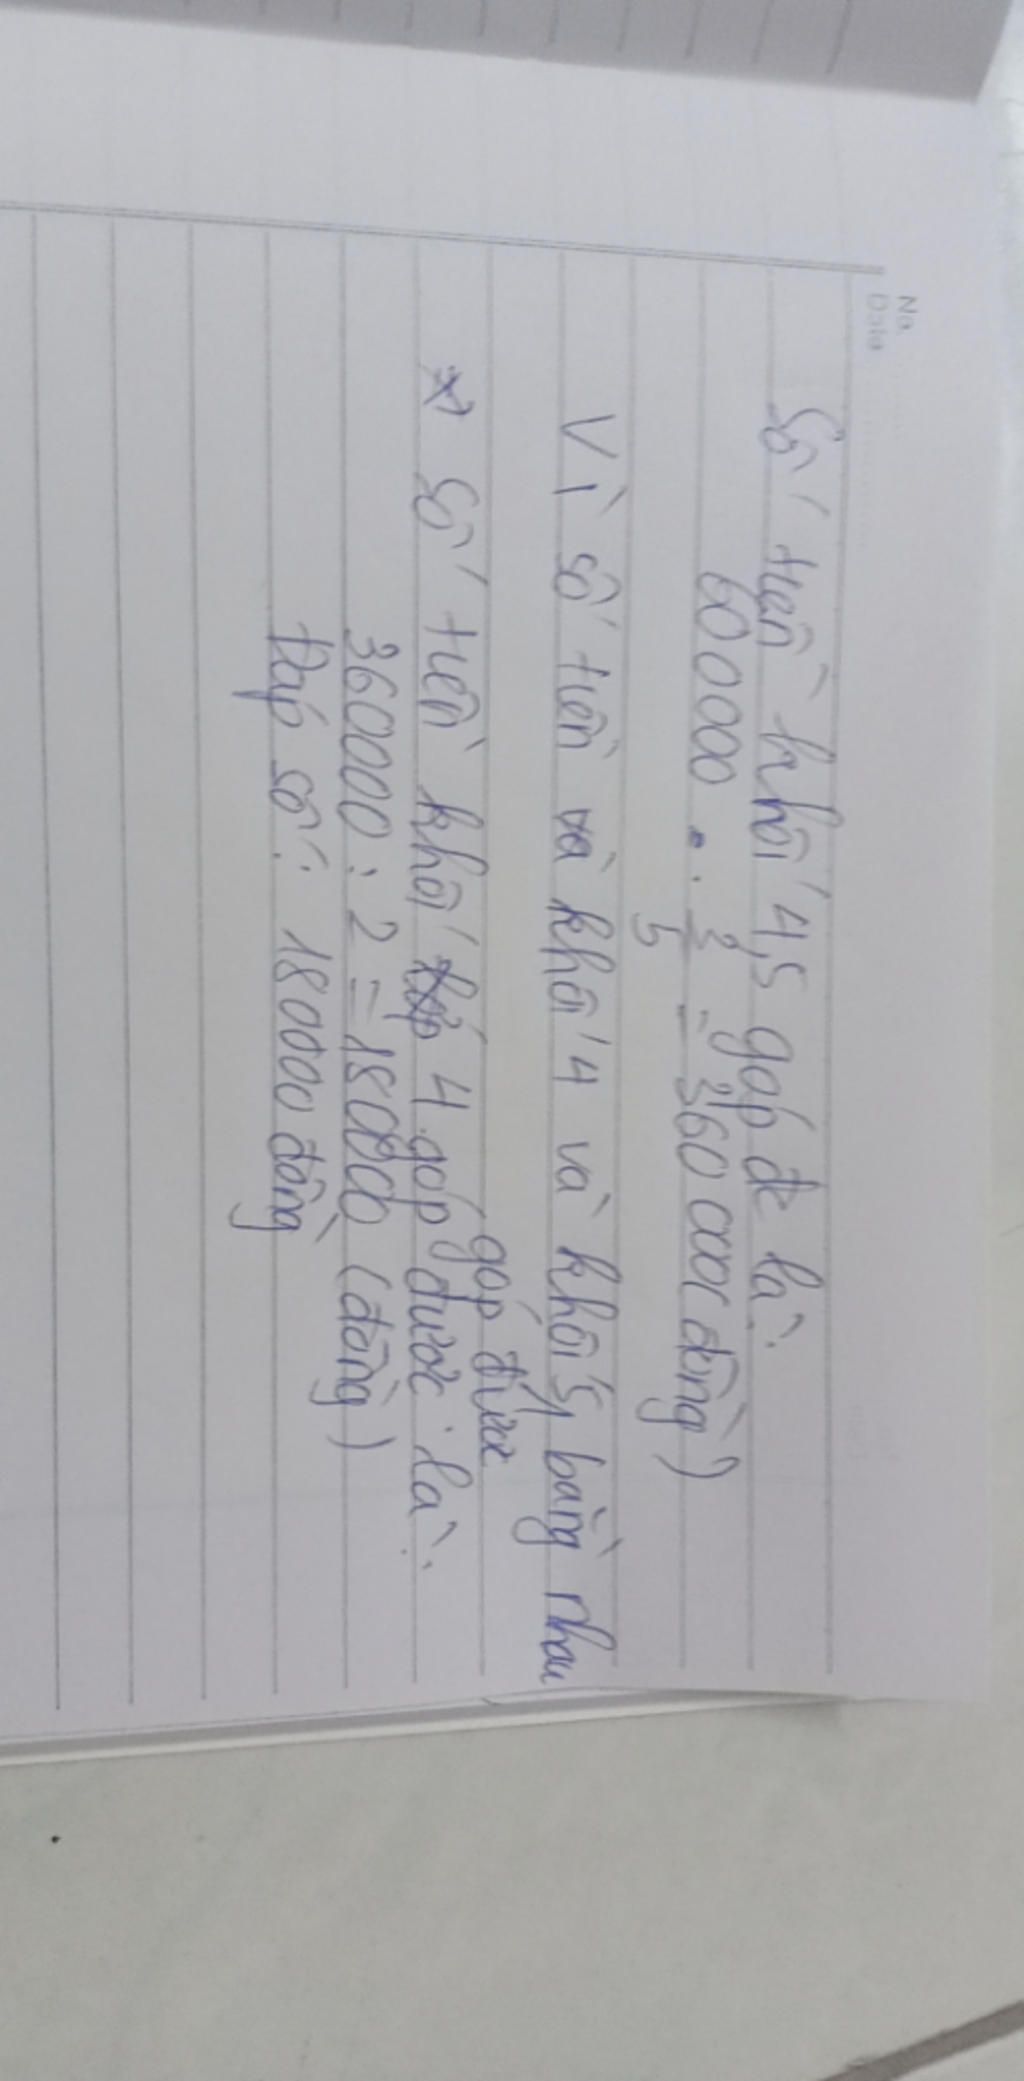 No.
Date
Số tiền khối 4,5 góp đc là:
600000 . 3/5 = 360000 đồng)
Vì số tiền và khối 4 và khối 5 bằng nhau
góp được
Số tiền khối 4 góp được là:
360000 : 2 = 18000 (đồng)
Đáp số: 18000 đồng